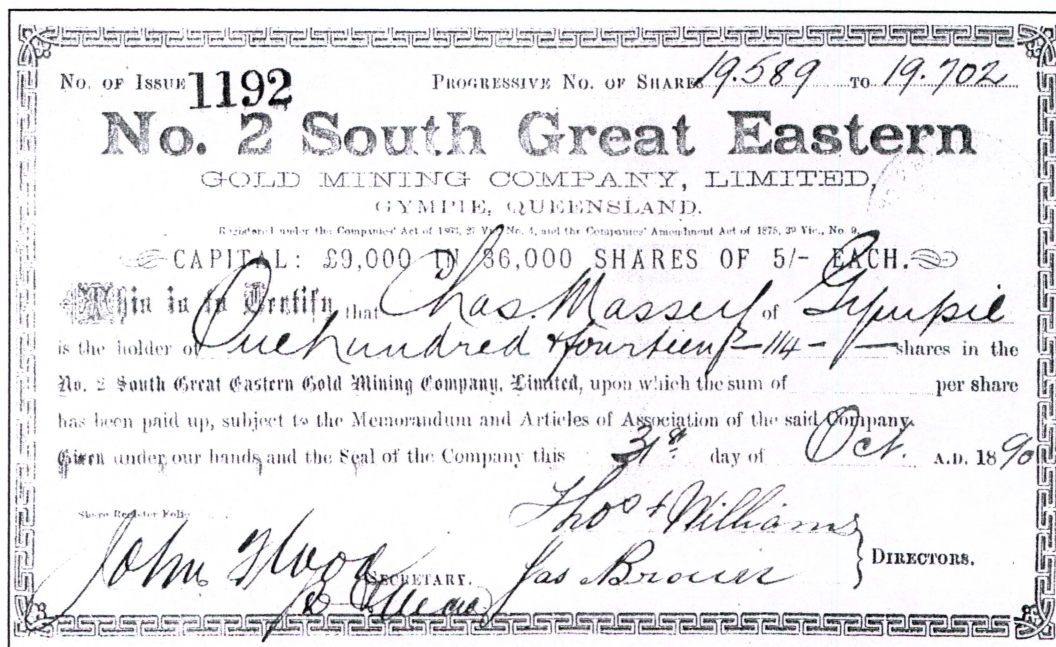 No. of Issue 1192 Progressive No. of Shares 19.589 to 19.702
No. 2 South Great Eastern
GOLD MINING COMPANY, LIMITED,
GYMPIE, QUEENSLAND.
Registered under the Companies' Act of 1863, 27 Vic. No. 4, and the Companies' Amendment Act of 1875, 39 Vic., No. 9.
CAPITAL: £9,000 IN 36,000 SHARES OF 5/- EACH.
This is to Certify that Chas. Massey of Gympie
is the holder of One hundred & fourteen /- 114 -/- shares in the
No. 2 South Great Eastern Gold Mining Company, Limited, upon which the sum of per share
has been paid up, subject to the Memorandum and Articles of Association of the said Company.
Given under our hands and the Seal of the Company this 31st day of Oct. A.D. 1890
Share Register Folio
Thos Williams
John Flood Secretary. Jas Brown Directors.